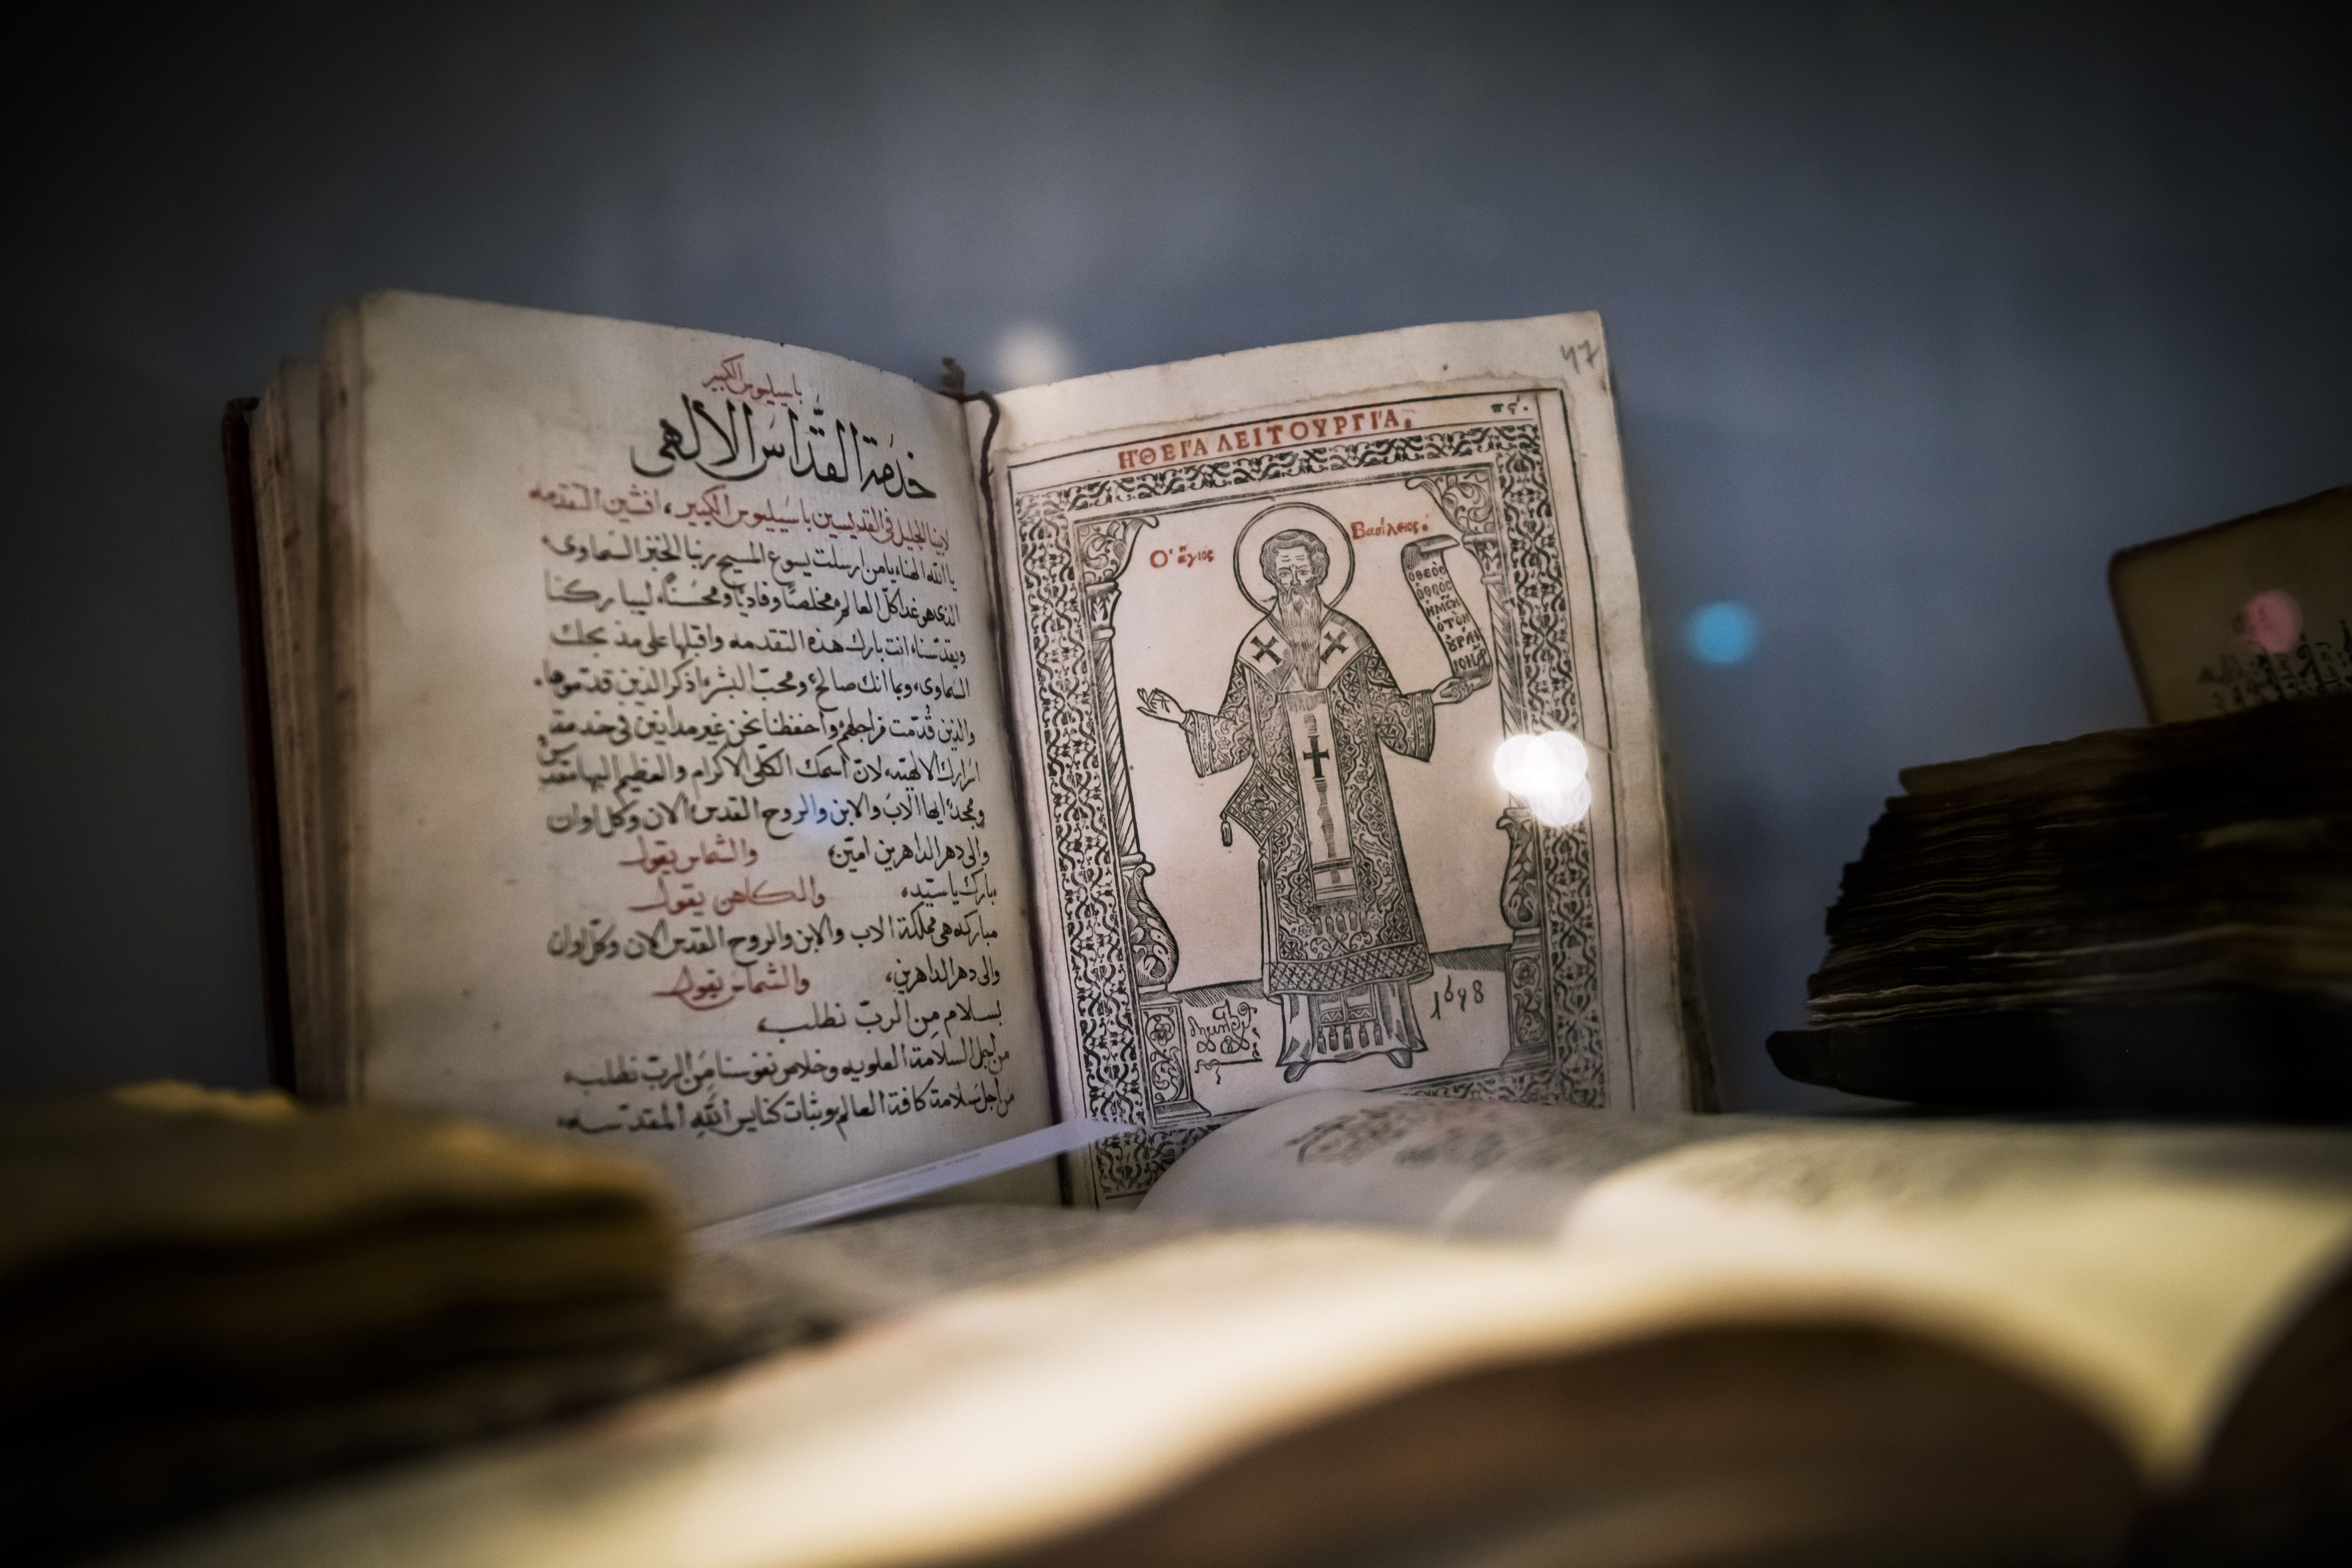 باسيليوس الكبير
خدمة القدّاس الالهى
لابينا الجليل فى القديسين باسيليوس الكبير، افشين التقدمه
يا الله الهنا، يا من ارسلت يسوع المسيح ربنا الخبز السماوى،
الذى هو غدا كل العالم، مخلصًا وفاديًا ومحسنًا، ليباركنا
ويقدّسنا، انت بارك هذه التقدمه واقبلها على مذبحك
السماوى، وبما انك صالح ومحبّ البشر، اذكر الذين قدّموها.
والذين قُدّمت من اجلهم، واحفظنا نحن غير مدانين فى خدمة
اسرارك الالهيّه، لانّ اسمك الكلّى الاكرام والعظيم البها متقدس
وممجد، ايها الاب والابن والروح القدس، الان وكل اوان
والى دهر الداهرين امين، والشماس يقول
بارك يا سيّد، والكاهن يقول
مباركه هى مملكة الاب والابن والروح القدس، الان وكل اوان
والى دهر الداهرين، والشماس يقول
بسلام من الربّ نطلب،
من اجل السلامة العلويه وخلاص نفوسنا من الربّ نطلب،
من اجل سلامة كافة العالم وثبات كنايس الله المقدّسه،
47
Ἡ ΘΕΙΑ ΛΕΙΤΟΥΡΓΙΑ.
Ὁ ἅγιος Βασίλειος.
ὁ θεὸς
ὁ θεὸς
ἡμῶν
ὁ τὸν
ȣ̓ράν
ιον ἄρ
1698